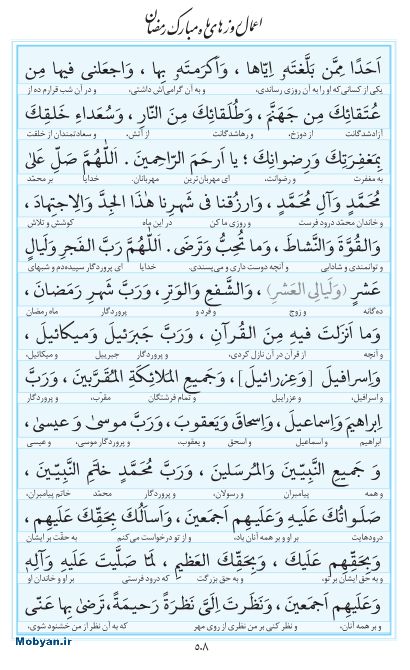 اعمال روزهای ماه مبارک رمضان
اَحَدًا مِمَّن بَلَّغتَهُۥ اِیّاها ، وَاَکرَمتَهُۥ بِها ، وَاجعَلنی فیها مِن
یکی از کسانی‌که او را به آن روزی رساندی، و به آن گرامی‌اش داشتی، و در آن شب قرارم ده از
عُتَقائِکَ مِن جَهَنَّمَ ، وَطُلَقائِکَ مِنَ النّارِ ، وَسُعَداءِ خَلقِکَ
آزادشدگانت از دوزخ، و رهاشدگانت از آتش، و سعادتمندان از خلقت
بِمَغفِرَتِکَ وَرِضوانِکَ ؛ یا اَرحَمَ الرّاحِمینَ . اَللّٰهُمَّ صَلِّ عَلیٰ
به مغفرت و رضوانت، ای مهربان‌ترین مهربانان. خدایا بر محمّد
مُحَمَّدٍ وَآلِ مُحَمَّدٍ ، وَارزُقنا فی شَهرِنا هٰذَا الجِدَّ وَالاِجتِهادَ ،
و خاندان محمّد درود فرست و روزی ما کن در این ماه کوشش و تلاش
وَالقُوَّةَ وَالنَّشاطَ ، وَما تُحِبُّ وَتَرضیٰ . اَللّٰهُمَّ رَبَّ الفَجرِ وَلَیالٍ
و توانمندی و شادابی و آنچه دوست داری و می‌پسندی. خدایا ای پروردگار سپیده‌دم و شبهای
عَشرٍ (وَلَیالِی العَشرِ) ، وَالشَّفعِ وَالوَترِ ، وَرَبَّ شَهرِ رَمَضانَ ،
ده‌گانه و زوج و فرد و پروردگار ماه رمضان
وَما اَنزَلتَ فیهِ مِنَ القُرآنِ ، وَرَبَّ جَبرَئیلَ وَمیکائیلَ ،
و آنچه از قرآن در آن نازل کردی، و پروردگار جبرییل و میکائیل،
وَاِسرافیلَ [وَعِزرائیلَ] ، وَجَمیعِ المَلائِکَةِ المُقَرَّبینَ ، وَرَبَّ
و اسرافیل، و عزراییل و تمام فرشتگان مقرّب، و پروردگار
اِبراهیمَ وَاِسماعیلَ ، وَاِسحاقَ وَیَعقوبَ ، وَرَبَّ موسیٰ وَ عیسیٰ ،
ابراهیم و اسماعیل و اسحق و یعقوب، و پروردگار موسی، و عیسی
وَ جَمیعِ النَّبِیّینَ وَالمُرسَلینَ ، وَرَبَّ مُحَمَّدٍ خاتَمِ النَّبِیّینَ ،
و همه پیامبران و رسولان، و پروردگار محمّد خاتم پیامبران،
صَلَواتُکَ عَلَیهِ وَعَلَیهِم اَجمَعینَ ، وَاَسأَلُکَ بِحَقِّکَ عَلَیهِم ،
درودهایت بر او و بر همه آنان باد، و از تو درخواست می‌کنم به حقّت بر ایشان
وَبِحَقِّهِم عَلَیکَ ، وَبِحَقِّکَ العَظیمِ ، لَمّا صَلَّیتَ عَلَیهِ وَآلِهِ
و به حق ایشان بر تو، و به حق بزرگت که درود فرستی بر او و خاندان او
وَعَلَیهِم اَجمَعینَ ، وَنَظَرتَ اِلَیَّ نَظرَةً رَحیمَةً، تَرضیٰ بِها عَنّی
و بر همه آنان، و نظر کنی بر من نظری از روی مهر که به آن نظر از من خشنود شوی،
Mobyan.ir
۵۰۸